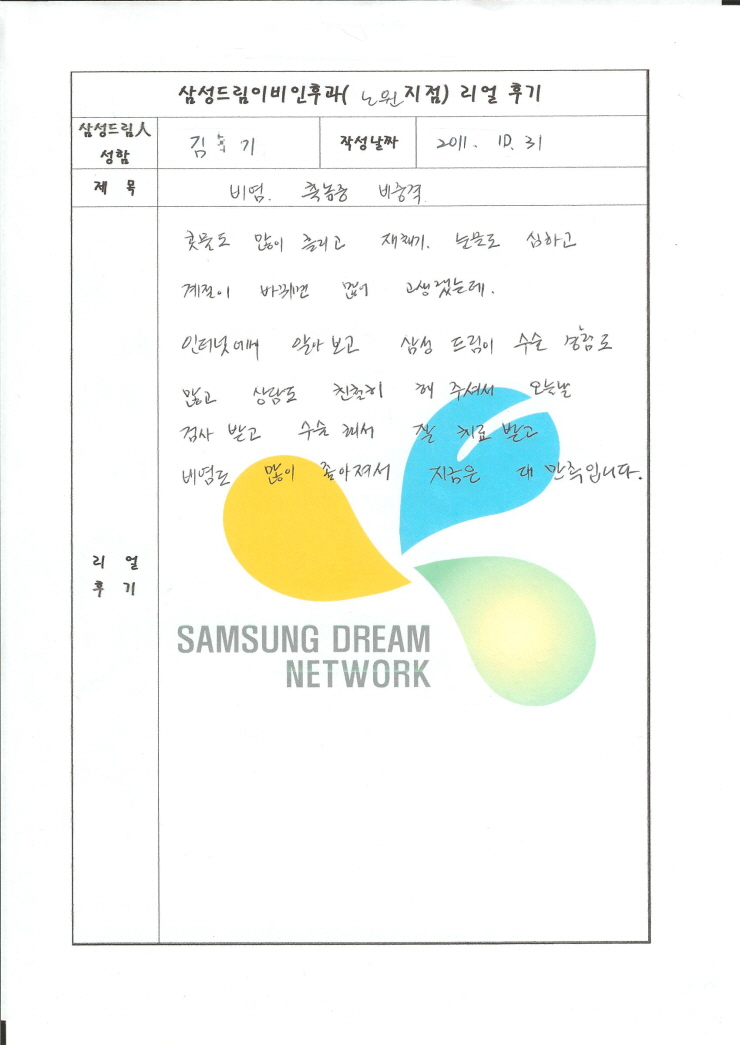 삼성드림이비인후과( 노원지점) 리얼 후기
삼성드림人
성함
김 기
작성날짜
2011. 10. 31
제 목
비염. 축농증 비중격
콧물도 많이 흘리고 재채기. 눈물도 심하고
계절이 바뀌면 많이 고생했는데.
인터넷에서 알아보고 삼성 드림이 수술 경험도
많고 상담도 친절히 해 주셔서 오늘날
검사 받고 수술 해서 잘 치료 받고
비염도 많이 좋아져서 지금은 대 만족입니다.
리 얼
후 기
SAMSUNG DREAM
NETWORK